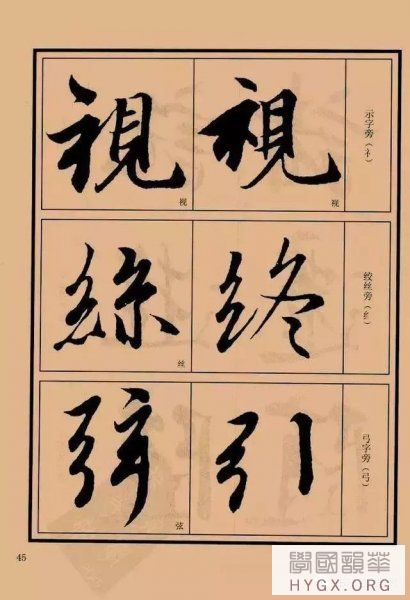 示字旁（礻）
視
视
視
视
绞丝旁（纟）
終
絲
丝
弓字旁（弓）
引
弦
弦
45
學國韻華
HYGX.ORG